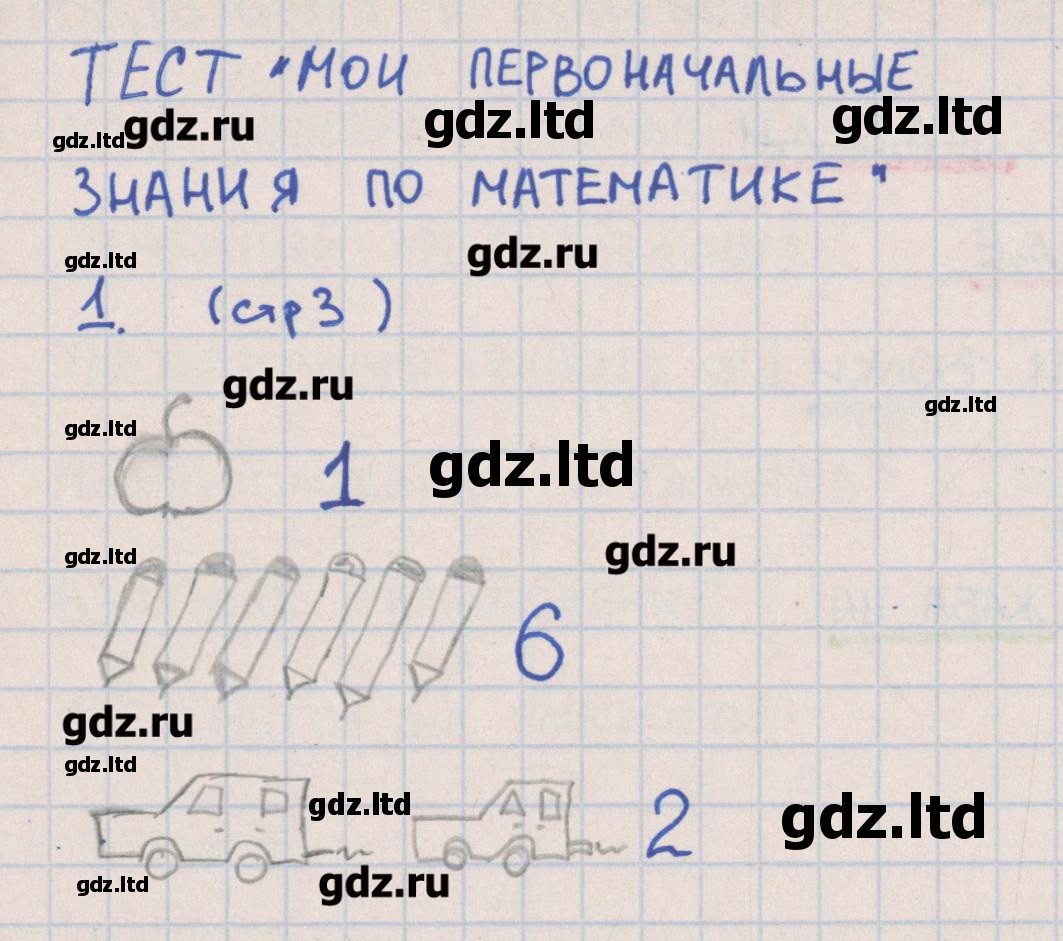 ТЕСТ "МОИ ПЕРВОНАЧАЛЬНЫЕ
gdz.ltd gdz.ru gdz.ltd gdz.ltd
ЗНАНИЯ ПО МАТЕМАТИКЕ"
gdz.ltd gdz.ru
1. (стр 3)
gdz.ru
gdz.ltd gdz.ltd
1 gdz.ltd
gdz.ltd gdz.ru
6
gdz.ru
gdz.ltd
gdz.ltd 2 gdz.ltd
gdz.ltd gdz.ru